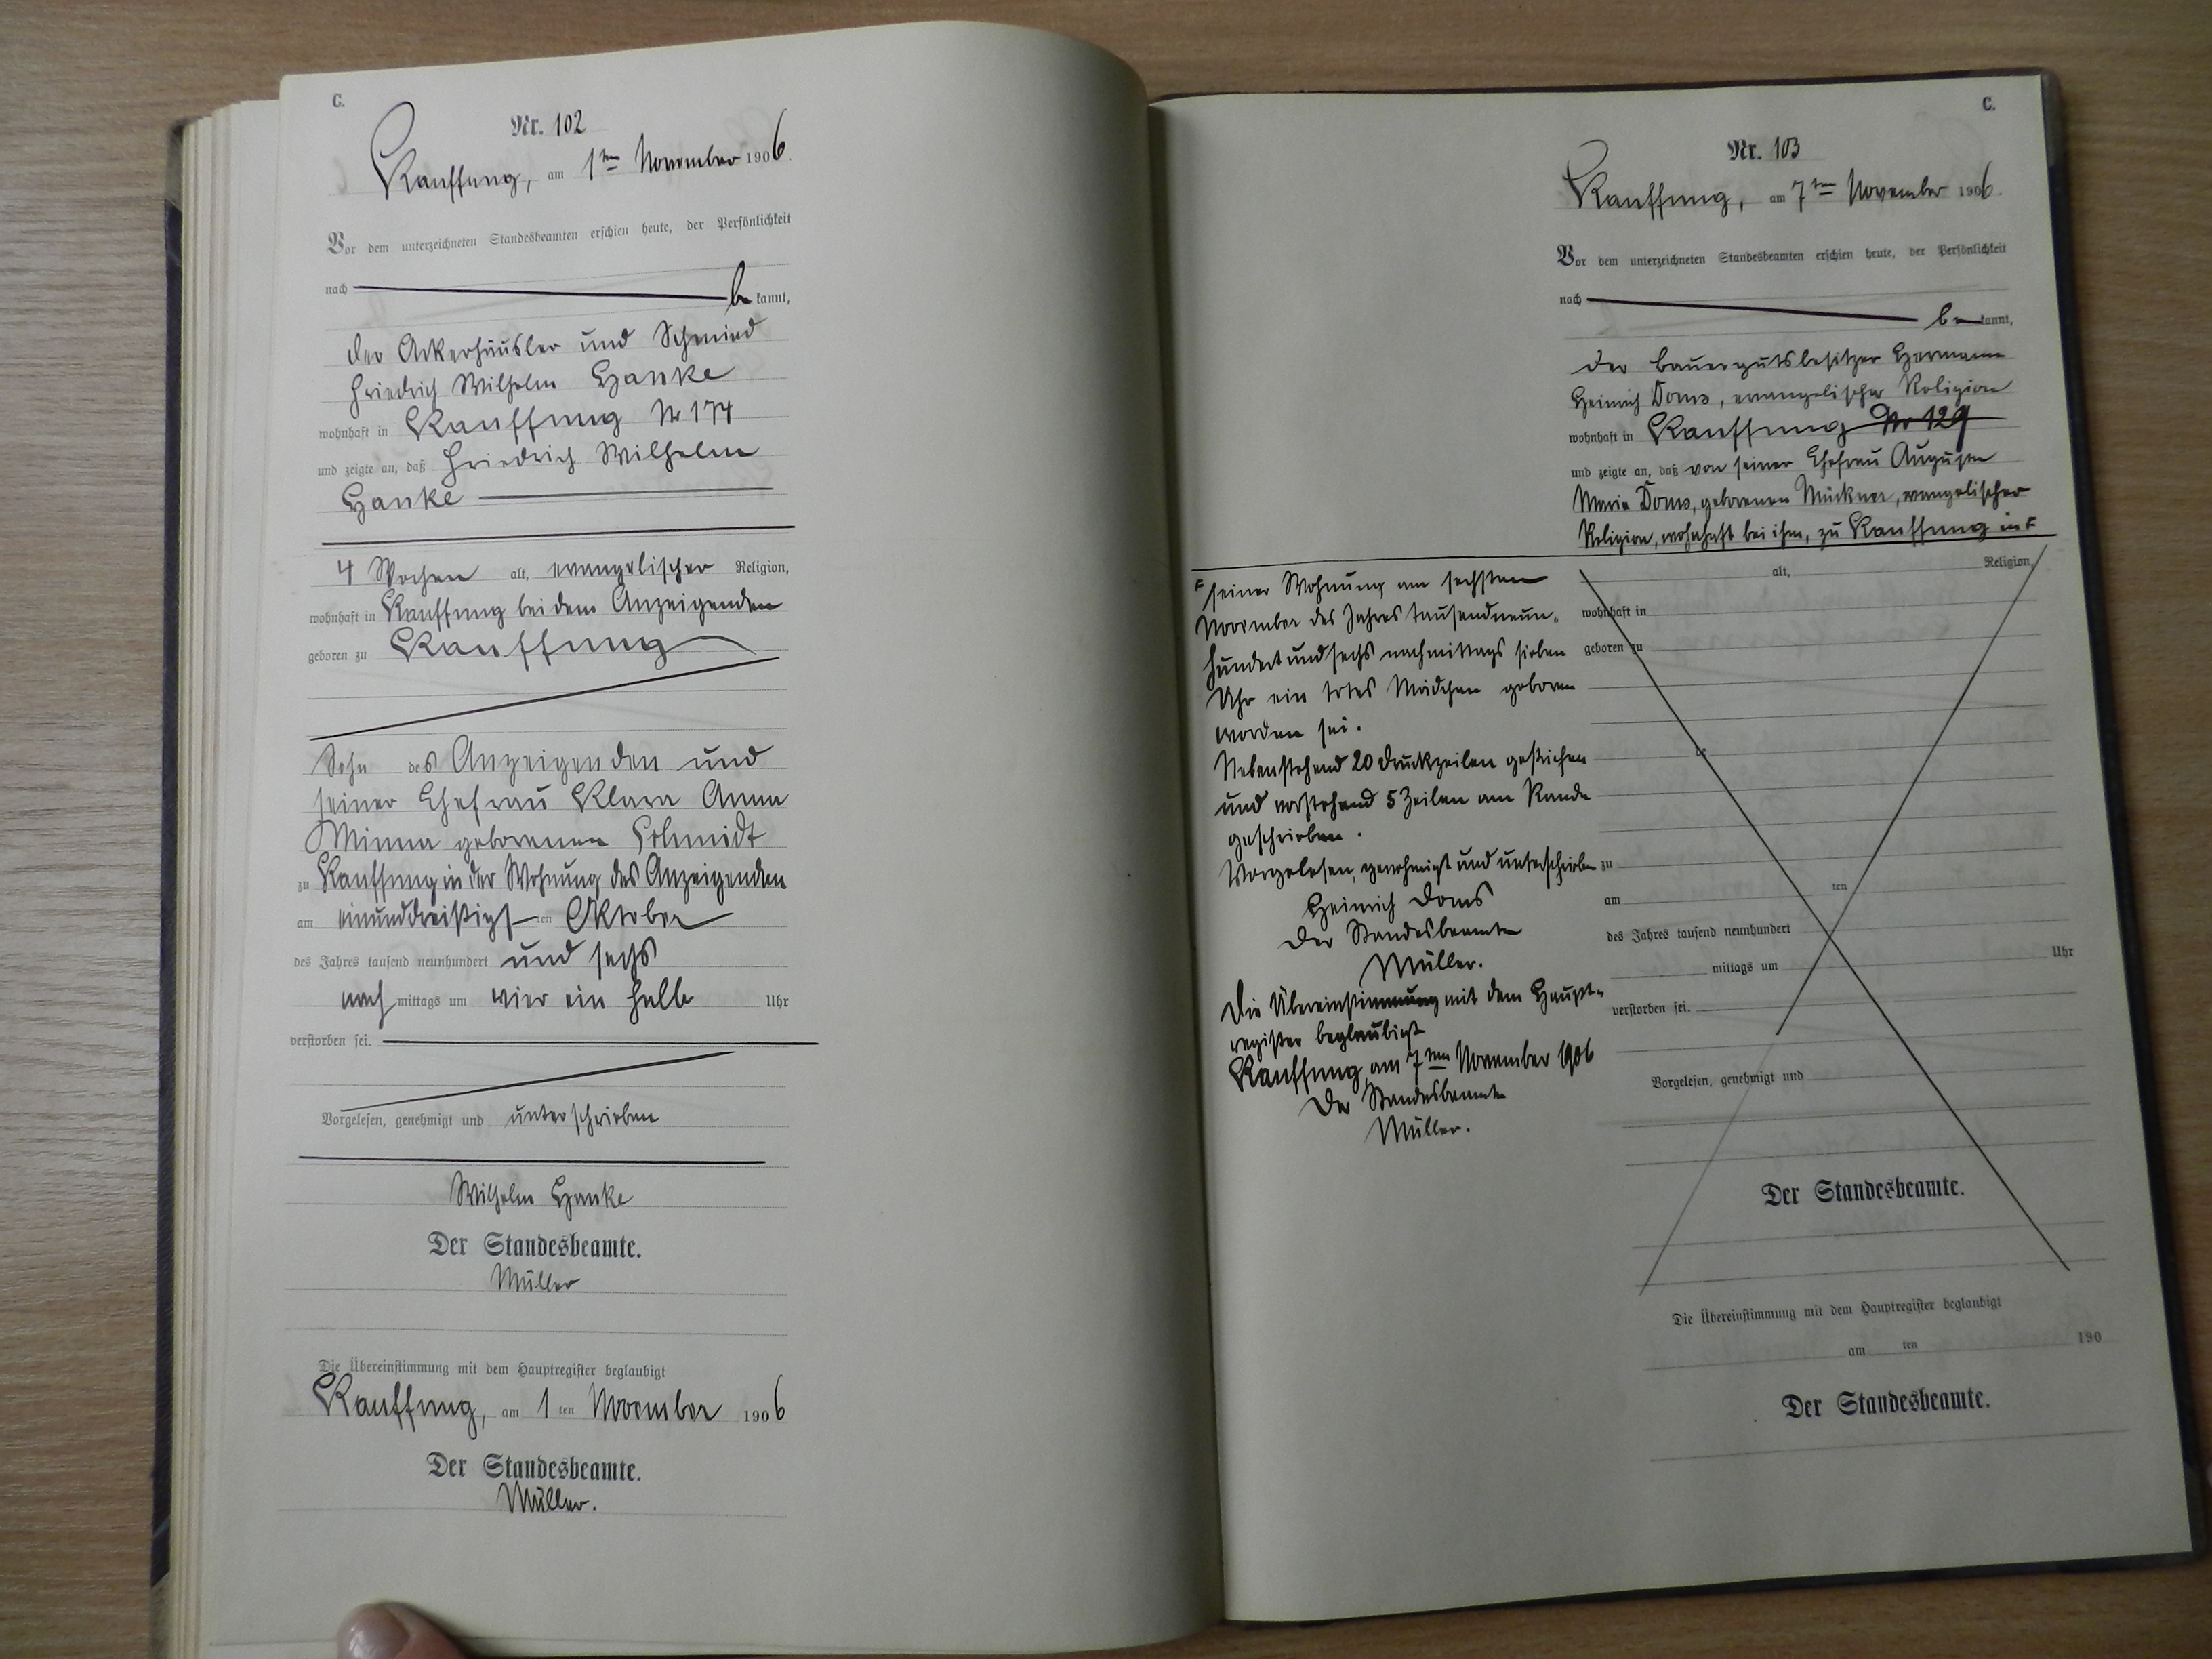 C.
Nr. 102
Kauffung, am 1ten November 1906.
Vor dem unterzeichneten Standesbeamten erschien heute, der Persönlichkeit
nach be kannt,
der Ackerhäusler und Schmied
Friedrich Wilhelm Hanke
wohnhaft in Kauffung Nr 174
und zeigte an, daß Friedrich Wilhelm
Hanke
4 Wochen alt, evangelischer Religion,
wohnhaft in Kauffung bei dem Anzeigenden
geboren zu Kauffung
Sohn des Anzeigenden und
seiner Ehefrau Klara Anna
Minna geborenen Schmidt
zu Kauffung in der Wohnung des Anzeigenden
am einunddreißigsten Oktober
des Jahres tausend neunhundert und sechs
nach mittags um vier ein halb Uhr
verstorben sei.
Vorgelesen, genehmigt und unterschrieben
Wilhelm Hanke
Der Standesbeamte.
Müller
Die Übereinstimmung mit dem Hauptregister beglaubigt
Kauffung, am 1 ten November 1906
Der Standesbeamte.
Müller.
C.
Nr. 103
Kauffung, am 7ten November 1906.
Vor dem unterzeichneten Standesbeamten erschien heute, der Persönlichkeit
nach be kannt,
der Bauergutsbesitzer Hermann
Heinrich Doms, evangelischer Religion
wohnhaft in Kauffung Nr 129
und zeigte an, daß von seiner Ehefrau Auguste
Maria Doms, geborenen, evangelischer
Religion, wohnhaft bei ihm, zu Kauffung in F
F seiner Wohnung am sechsten
November des Jahres tausendneun-
hundert und sechs nachmittags sieben
Uhr ein totes Mädchen geboren
worden sei.
Nebenstehend 20 Druckzeilen gestrichen
und vorstehend 5 Zeilen am Rande
geschrieben.
Vorgelesen, genehmigt und unterschrieben
Heinrich Doms
Der Standesbeamte
Müller.
Die Übereinstimmung mit dem Haupt-
register beglaubigt
Kauffung, am 7ten November 1906
Der Standesbeamte
Müller.
alt, Religion,
wohnhaft in
geboren zu
de
zu
am ten
des Jahres tausend neunhundert
mittags um Uhr
verstorben sei.
Vorgelesen, genehmigt und
Der Standesbeamte.
Die Übereinstimmung mit dem Hauptregister beglaubigt
am ten 190
Der Standesbeamte.